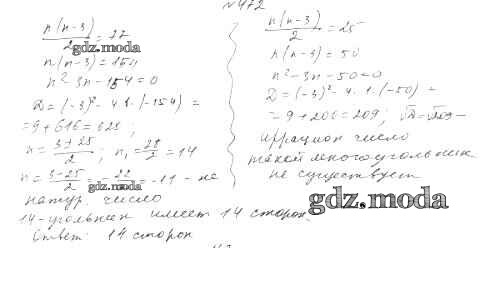 №472
n(n-3)/2 = 77
n(n-3) = 154
n² - 3n - 154 = 0
D = (-3)² - 4·1·(-154) =
= 9 + 616 = 625;
n = (3±25)/2; n₁ = 28/2 = 14
n = (3-25)/2 = -22/2 = -11 - не
натур. число
14-угольник имеет 14 сторон.
Ответ: 14 сторон
n(n-3)/2 = 25
n(n-3) = 50
n² - 3n - 50 = 0
D = (-3)² - 4·1·(-50) =
= 9 + 200 = 209; √D = √209 -
иррацион число
такой многоугольник
не существует
gdz.moda
gdz.moda
gdz.moda